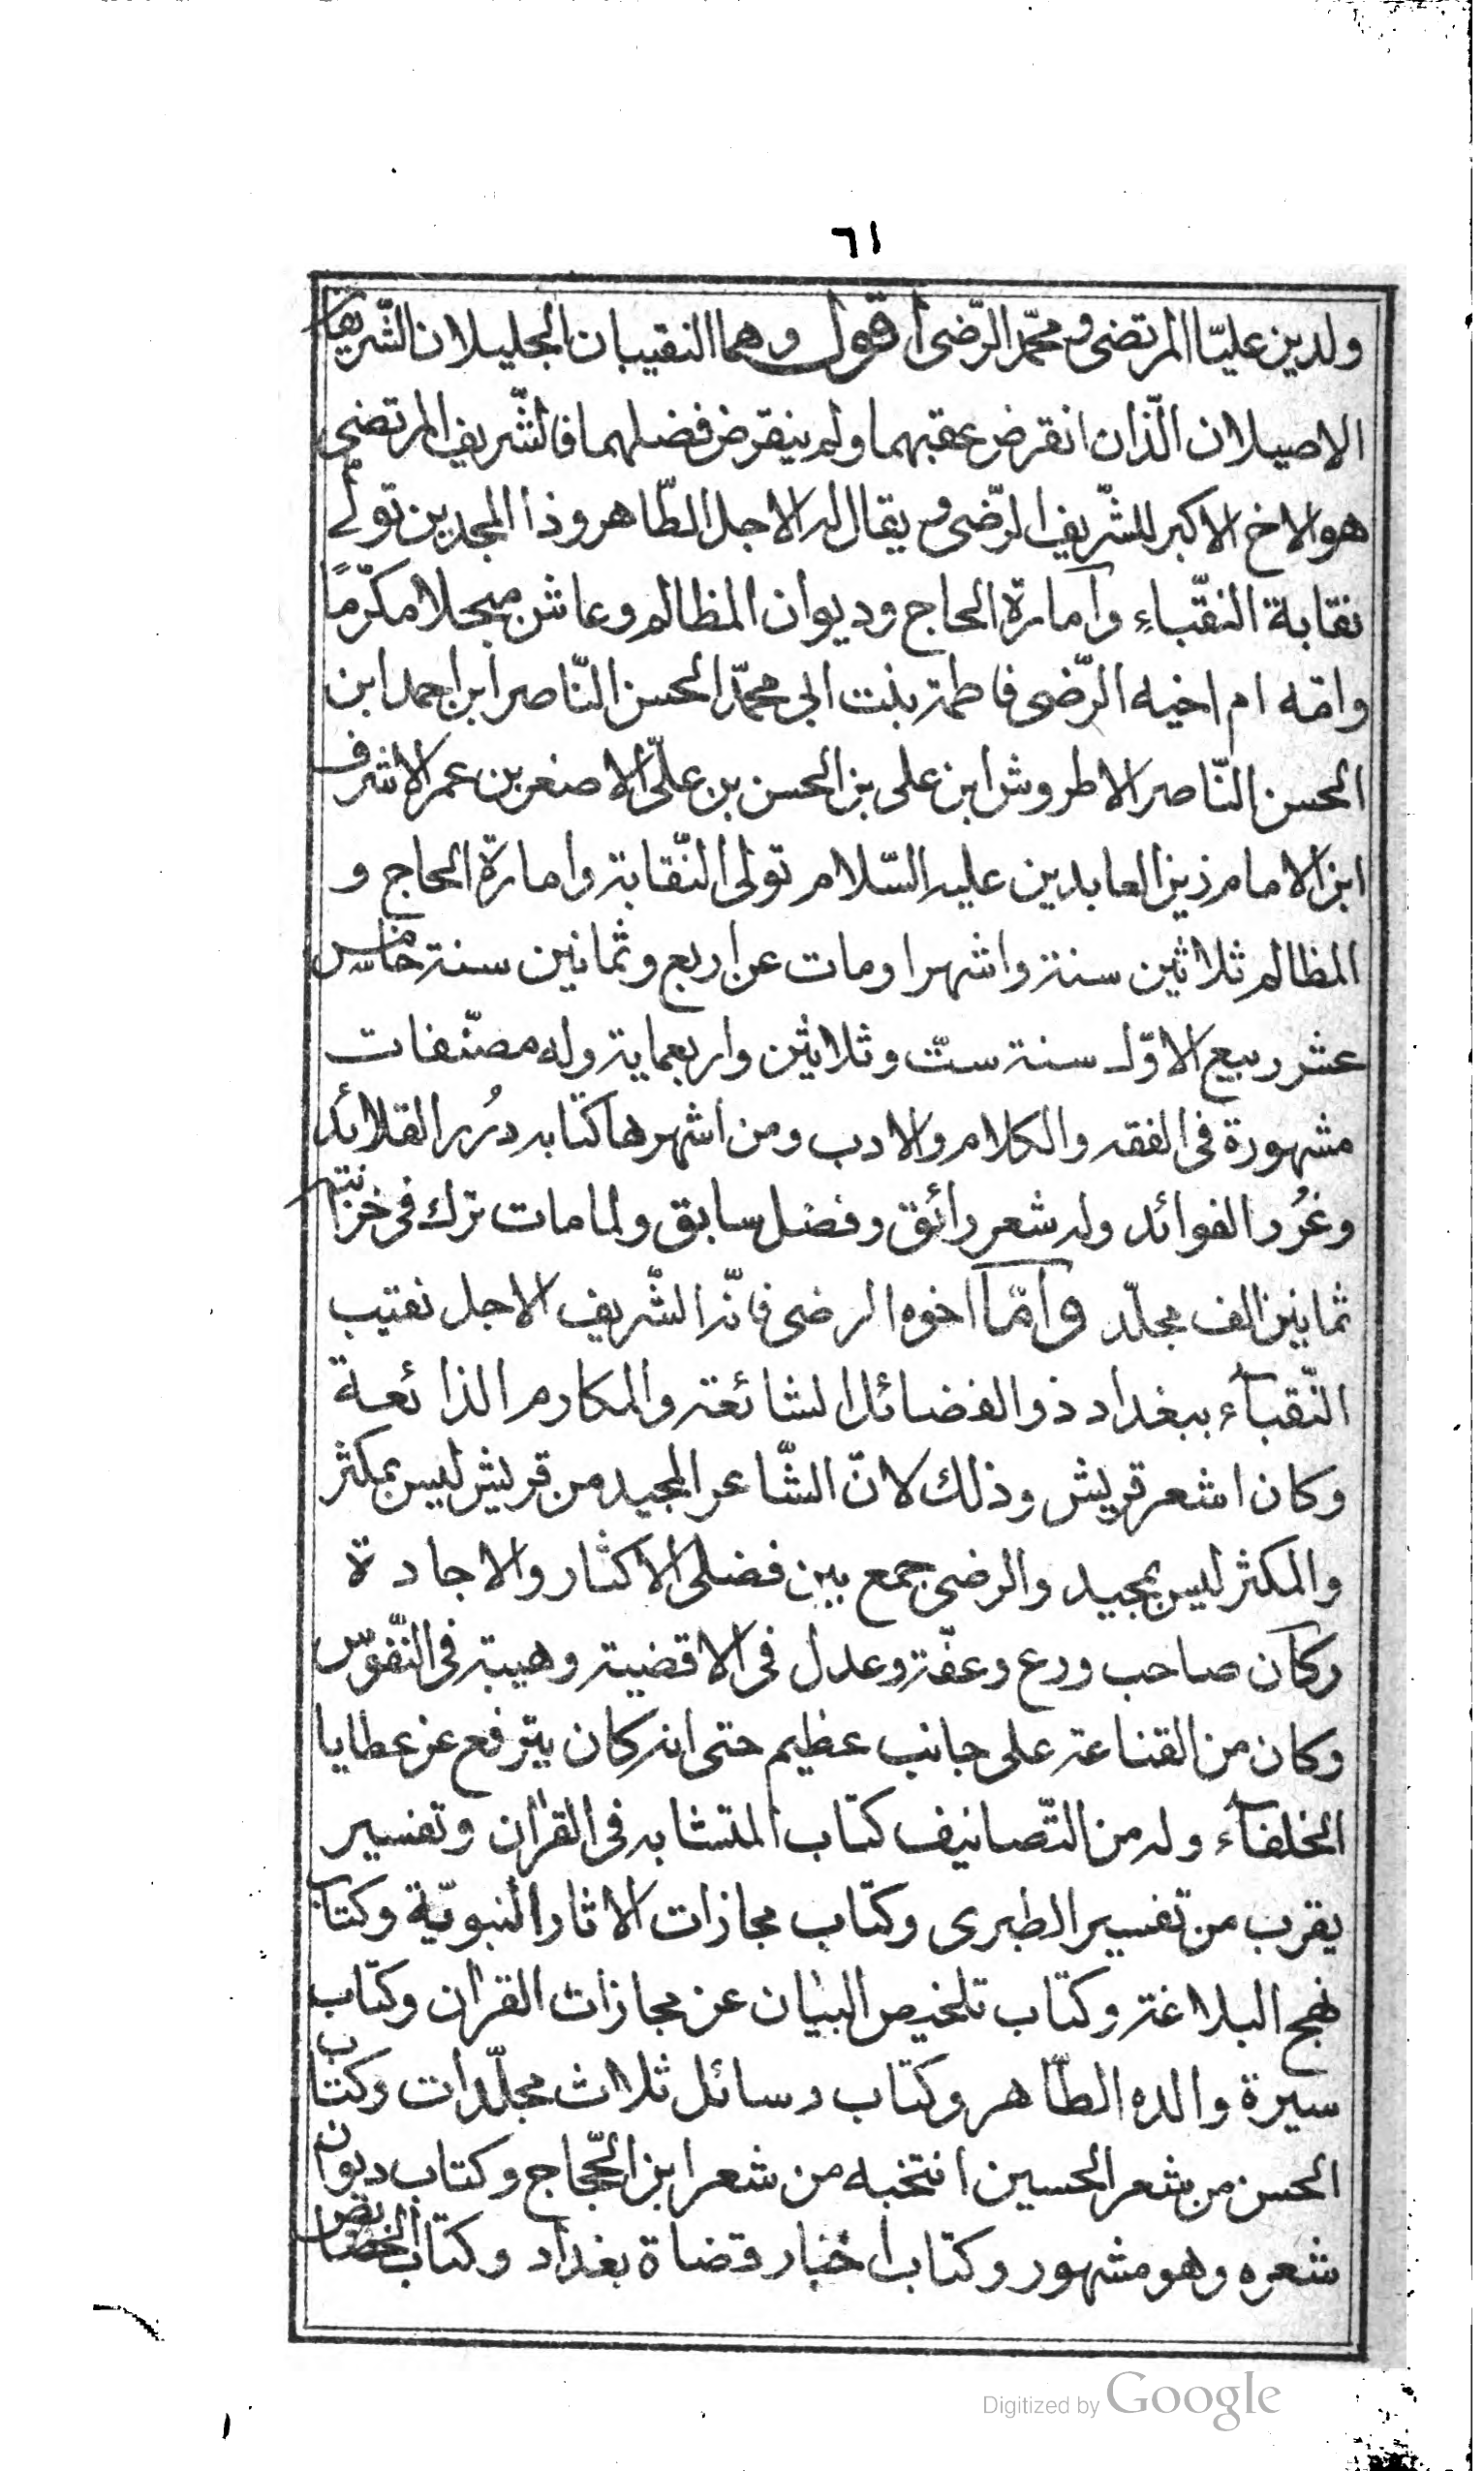 ٦١
ولدين عليّا المرتضى ومحمّد الرّضى اقول وهما النقيبان الجليلان الشّريفان
الاصيلان الّذان انقرض عقبهما ولم ينقرض فضلهما فالشّريف المرتضى
هو الاخ الاكبر للشّريف الرّضى ويقال له الاجل الطّاهر وذا المجدين تولّى
نقابة النقّباء وامارة الحاج وديوان المظالم وعاش مبجلا مكرّمًا
وامّه ام اخيه الرّضى فاطمة بنت ابى محمّد الحسن النّاصر ابن احمد ابن
الحسن النّاصر الاطروش ابن على بن الحسن بن علىّ الاصغر بن عمر الاشرف
ابن الامام زين العابدين عليه السّلام تولى النّقابة وامارة الحاج و
المظالم ثلاثين سنة واشهرا ومات عن اربع وثمانين سنة خامس
عشر ربيع الاوّل سنة ستّ وثلاثين واربعماية وله مصنّفات
مشهورة فى الفقه والكلام والادب ومن اشهرها كتابه دُرر القلائد
وغُرر الفوائد وله شعر رائق وفضل سابق ولما مات ترك فى خزانته
ثمانين الف مجلّد وامّا اخوه الرضى فانّه الشّريف الاجل نقيب
النّقبآء ببغداد ذو الفضائل الشائعة والمكارم الذائعة
وكان اشعر قريش وذلك لانّ الشّاعر المجيد من قريش ليس بمكثر
والمكثر ليس بمجيد والرضى جمع بين فضلى الاكثار والاجادة
وكان صاحب ورع وعفّة وعدل فى الاقضية وهيبة فى النّفوس
وكان من القناعة على جانب عظيم حتى انه كان يترفع عن عطايا
الخلفآء وله من التّصانيف كتاب المتشابه فى القران وتفسير
يقرب من تفسير الطبرى وكتاب مجازات الاثار النبويّة وكتاب
نهج البلاغة وكتاب تلخيص البيان عن مجازات القران وكتاب
سيرة والده الطّاهر وكتاب رسائل ثلاث مجلّدات وكتاب
الحسن من شعر الحسين انتخبه من شعر ابن الحّجاج وكتاب ديوان
شعره وهو مشهور وكتاب اخبار قضاة بغداد وكتاب الخصائص
Digitized by Google